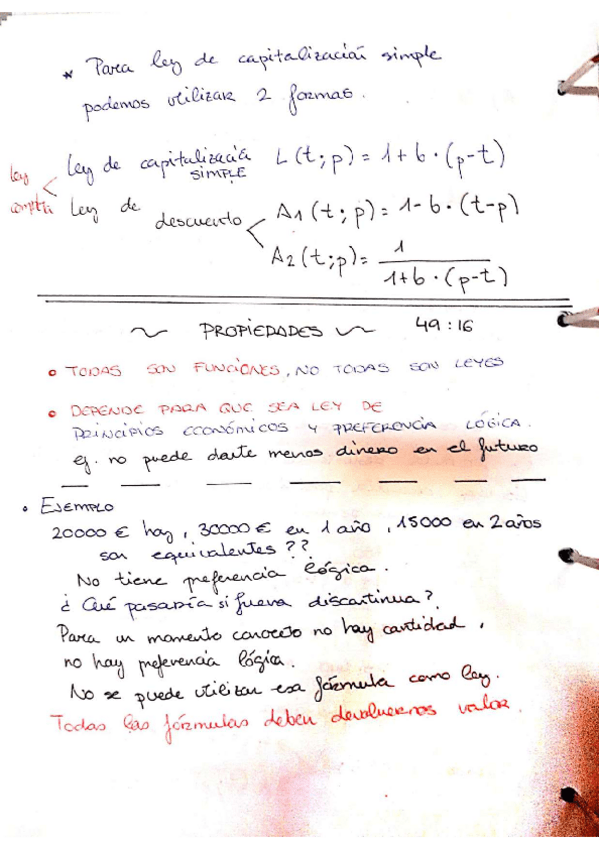 * Para ley de capitalización simple
podemos utilizar 2 formas.
ley Ley de capitalización SIMPLE L(t;p) = 1+b·(p-t)
Ley de descuento A1(t;p) = 1-b·(t-p)
A2(t;p) = 1/(1+b·(p-t))
~ PROPIEDADES ~ 49:16
• TODAS SON FUNCIONES, NO TODAS SON LEYES
• DEPENDE PARA QUE SEA LEY DE
PRINCIPIOS ECONÓMICOS Y PREFERENCIA LÓGICA.
ej. no puede darte menos dinero en el futuro
• EJEMPLO
20000 € hoy, 30000 € en 1 año, 15000 en 2 años
son equivalentes??
No tiene preferencia lógica.
¿Qué pasaría si fuera discontinua?
Para un momento concreto no hay cantidad,
no hay preferencia lógica.
No se puede utilizar esa fórmula como ley.
Todas las fórmulas deben devolvernos valor.